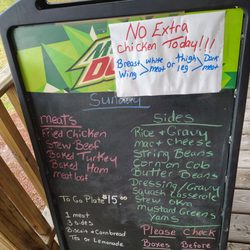 No Extra
Chicken Today!!!
Breast white or thigh Dark
Wing meat leg meat
Sunday
meats
Fried Chicken
Stew Beef
Baked Turkey
Baked Ham
meatloaf
To Go Plate $15.00
1 meat
3 sides
Biscuit or Cornbread
Tea or Lemonade
Sides
Rice & Gravy
mac & Cheese
String Beans
Corn on Cob
Butter Beans
Dressing/Gravy
Squash casserole
Stew okra
mustard Greens
Yams
Please Check
Boxes Before